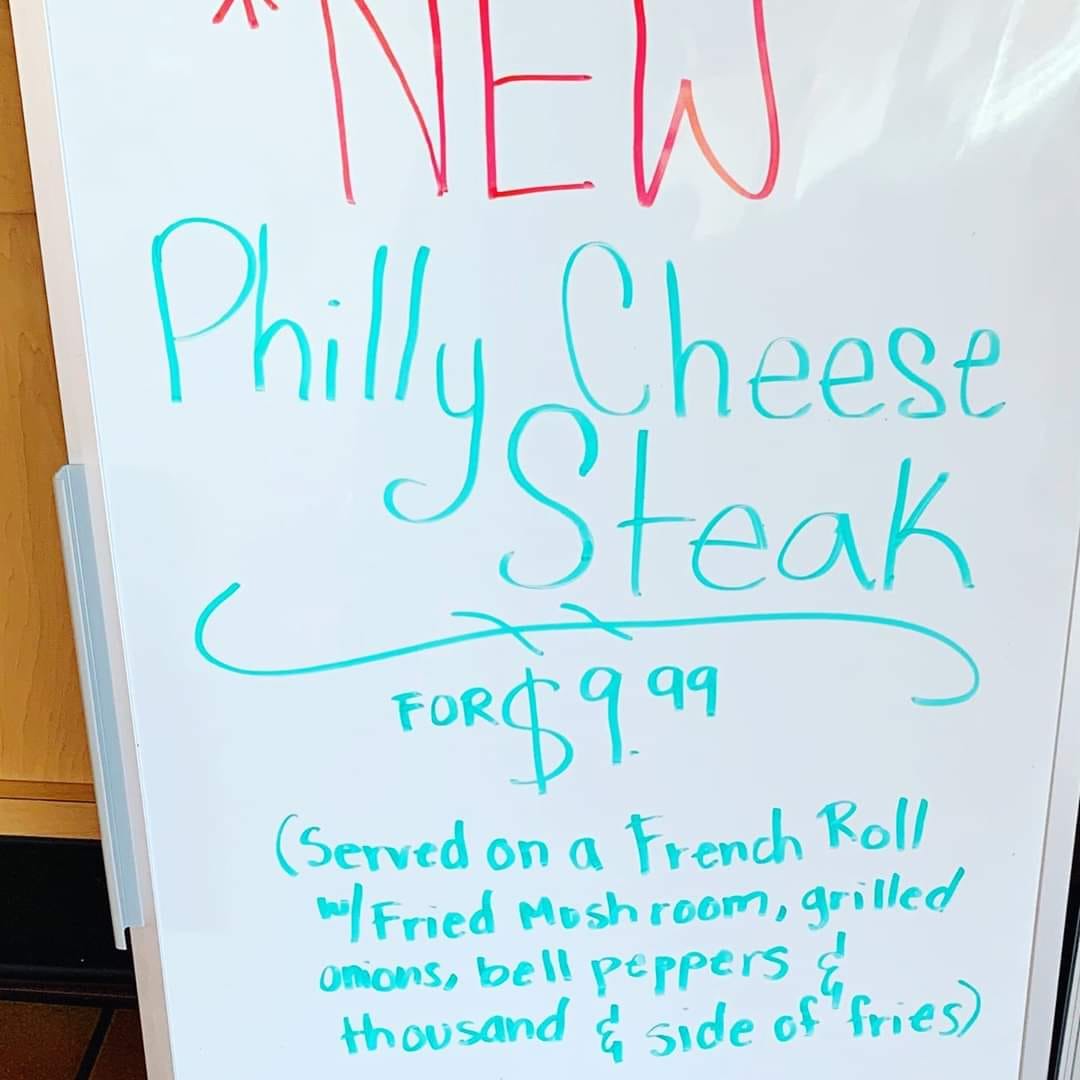 *NEW
Philly Cheese
Steak
FOR $9.99
(Served on a French Roll
w/ Fried Moshroom, grilled
onions, bell peppers &
thousand & side of fries)